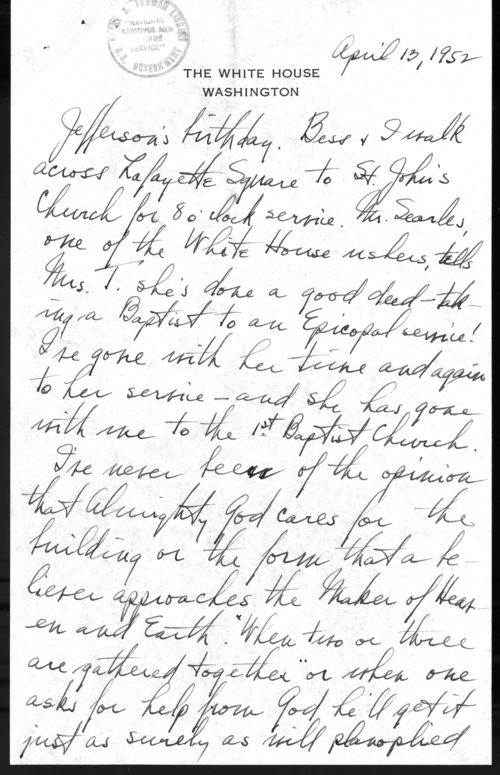 HARRY S. TRUMAN LIBRARY
"NATIONAL
ARCHIVES AND
RECORDS
SERVICE"
U.S. GOVERNMENT
April 13, 1952
THE WHITE HOUSE
WASHINGTON
Jefferson's birthday. Bess & I walk
across Lafayette Square to St. John's
Church for 8 o'clock service. Mr. Searles,
one of the White House ushers, tells
Mrs. T. she's done a good deed - tak-
ing a Baptist to an Epicopal service!
I've gone with her time and again
to her service - and she has gone
with me to the 1st Baptist Church.
I've never been of the opinion
that Almighty God cares for the
building or the form that a be-
liever approaches the Maker of Heav-
en and Earth. "When two or three
are gathered together" or when one
asks for help from God he'll get it
just as surely as will panoplied